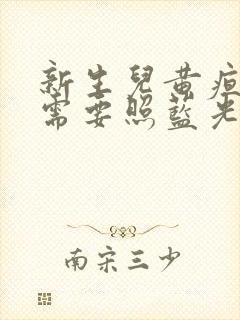 新生兒黃疸
需要照藍光
南宋三少